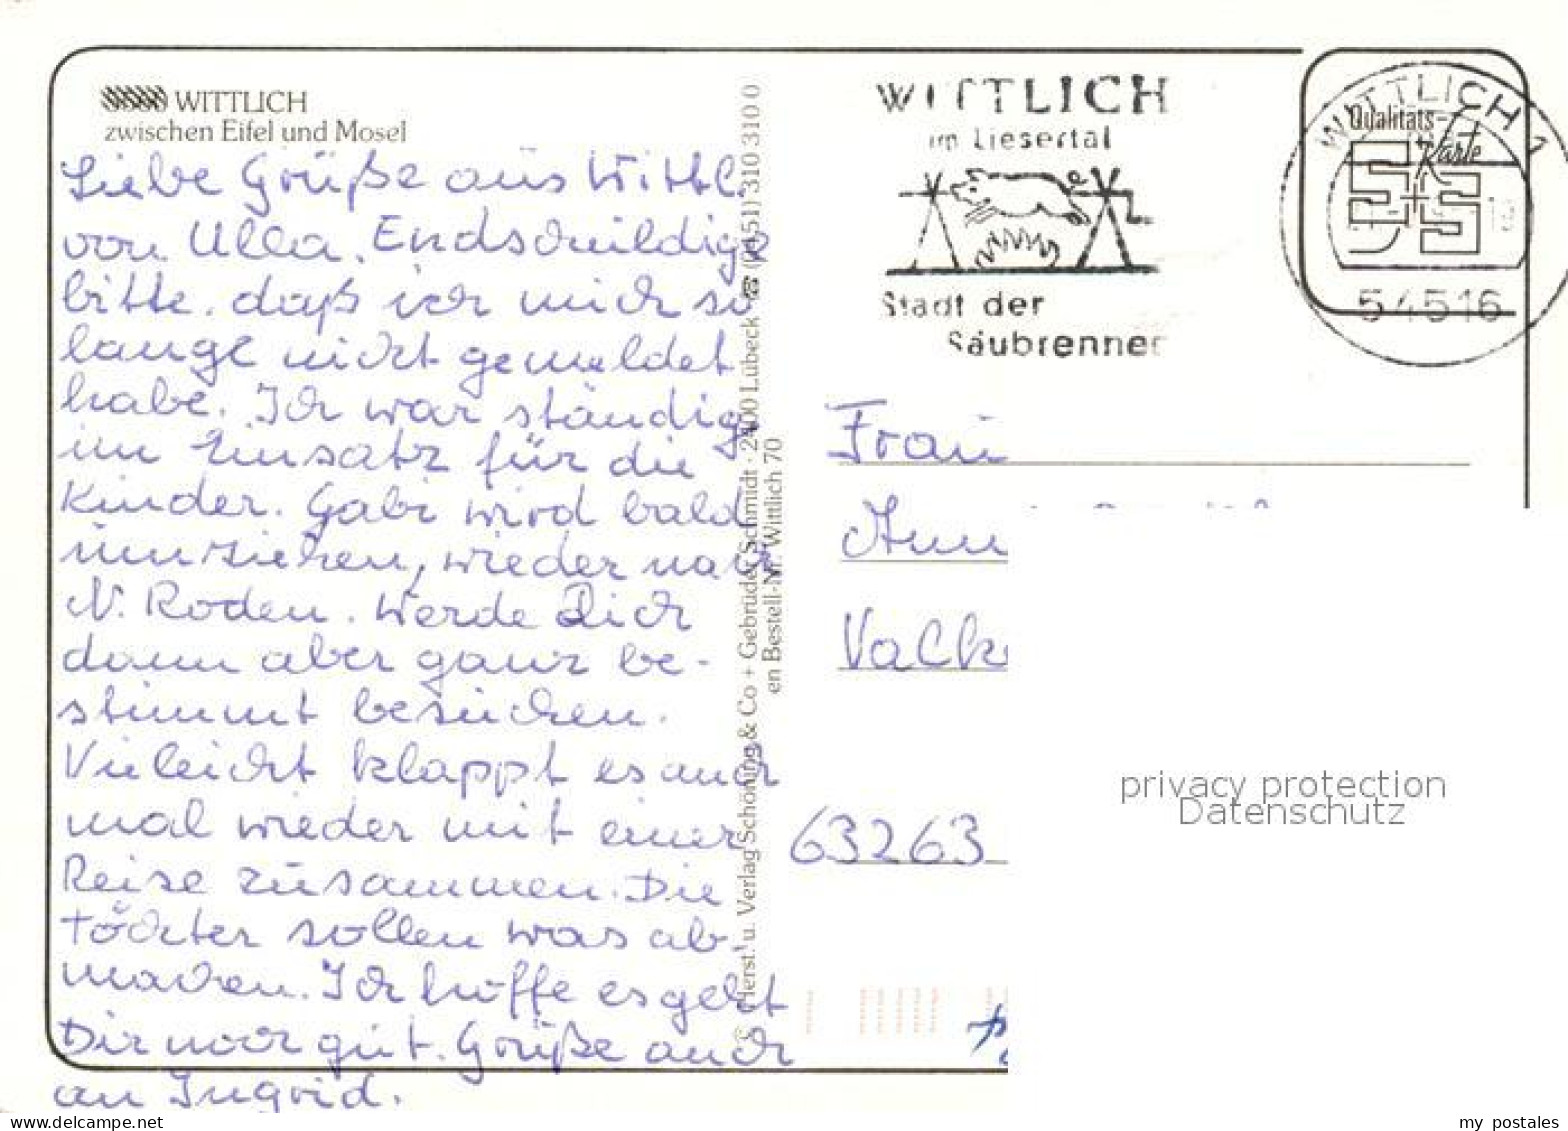 WITTLICH
zwischen Eifel und Mosel
Liebe Grüße aus Wittl.
von Ulla. Endschuildige
bitte, daß ich mich so
lange nicht gemeldet
habe. Ich war ständig
im Einsatz für die
Kinder. Gabi wird bald
umziehen, wieder nach
N. Roden. Werde Dich
dann aber ganz be-
stimmt besuchen.
Vieleicht klappt es auch
mal wieder mit einer
Reise zusammen. Die
Töchter sollen was ab-
machen. Ich hoffe es geht
Dir noch gut. Grüße auch
an Ingrid.
Herst. u. Verlag Schöning & Co + Gebrüder Schmidt · 2400 Lübeck ☎ (0451) 310 310 0
en Bestell-Nr. Wittlich 70
WITTLICH
im Liesertal
Stadt der
Säubrenner
WITTLICH 1
54516
Qualitäts-
Karte
S+S
Frau
63263
privacy protection
Datenschutz
my postales